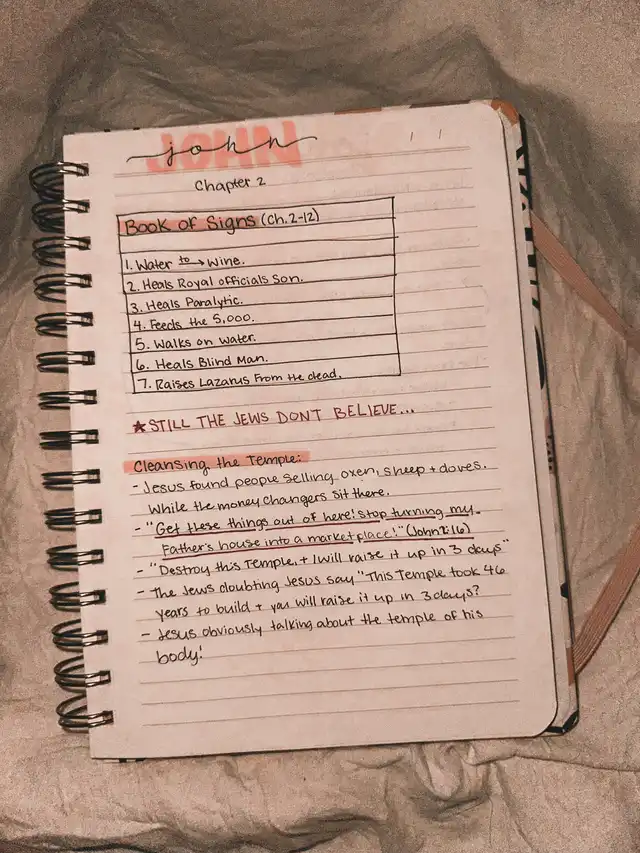 JOHN
john
Chapter 2
Book of Signs (Ch.2-12)
1. Water to → Wine.
2. Heals Royal officials Son.
3. Heals Paralytic.
4. Feeds the 5,000.
5. Walks on Water.
6. Heals Blind Man.
7. Raises Lazarus From the dead.
★STILL THE JEWS DON'T BELIEVE...
Cleansing the Temple:
- Jesus found people selling oxen, sheep + doves.
While the money changers sit there.
- "Get these things out of here! stop turning my
Father's house into a marketplace!" (John 2:16)
- "Destroy this Temple, + I will raise it up in 3 days"
- The Jews doubting Jesus say "This Temple took 46
years to build + you will raise it up in 3 days?
- Jesus obviously talking about the temple of his
body!